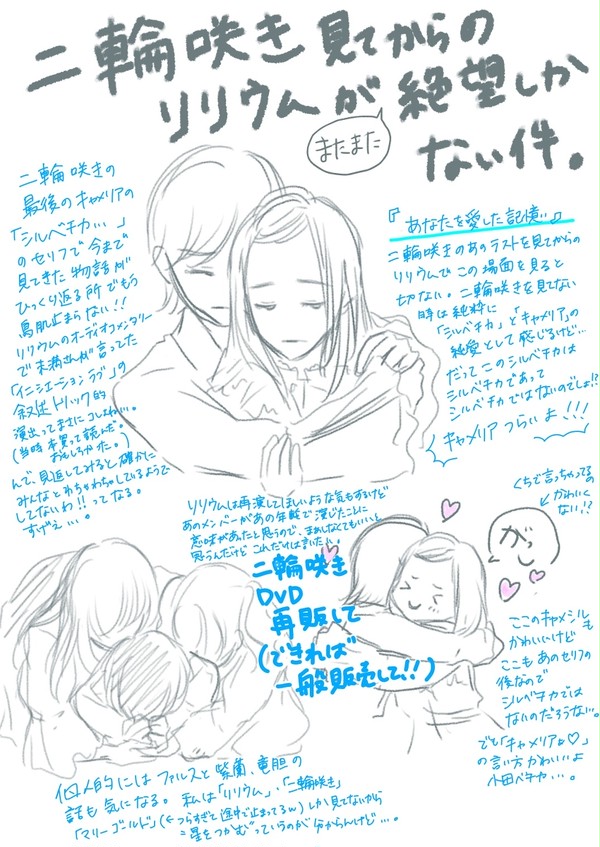 二輪咲き見てからの
リリウムが絶望しか
ない件。
またまた
二輪咲きの
最後のキャメリアの
「シルベチカ…」
のセリフで今まで
見てきた物語が
ひっくり返る所でもう
鳥肌止まらない!!
リリウムのオーディオコメンタリー
で末満さんが言ってた
「イニシエーションラブ」の
叙述トリック的
演出ってまさにコレよね…。
(当時本買って読んだ。
おもしろかった。)
んで、見返してみると確かに
みんなとわちゃわちゃしているようで
してないわ!!ってなる。
すげぇ…。
『あなたを愛した記憶…♪
二輪咲きのあのラストを見てからの
リリウムでこの場面を見ると
切ない。二輪咲きを見てない
時は純粋に
「シルベチカ」と「キャメリア」の
純愛として感じるけど…
だってこのシルベチカは
シルベチカであって
シルベチカではないのでしょ!?
キャメリアつらいよ!!!
リリウムは再演してほしいような気もするけど
あのメンバーがあの年齢で演じたことに
意味があったと思うので、まぁしなくてもいいと
思うんだけどこれだけは言いたい。
二輪咲き
DVD
再販して
(できれば
一般販売して!!)
くちで言っちゃってるの
かわいく
ない!?
がっし
ここのキャメシルも
かわいいけど
ここもあのセリフの
後なので
シルベチカでは
ないのだろうな…。
でも「キャメリア♡」
の言い方かわいいよ
小田ベチカ…。
個人的にはファルスと紫蘭、竜胆の
話も気になる。私は「リリウム」、「二輪咲き」
「マリーゴールド」(←つらすぎて途中で止まってるw)しか見てないから
"星をつかむ"っていうのが分からんけど…。